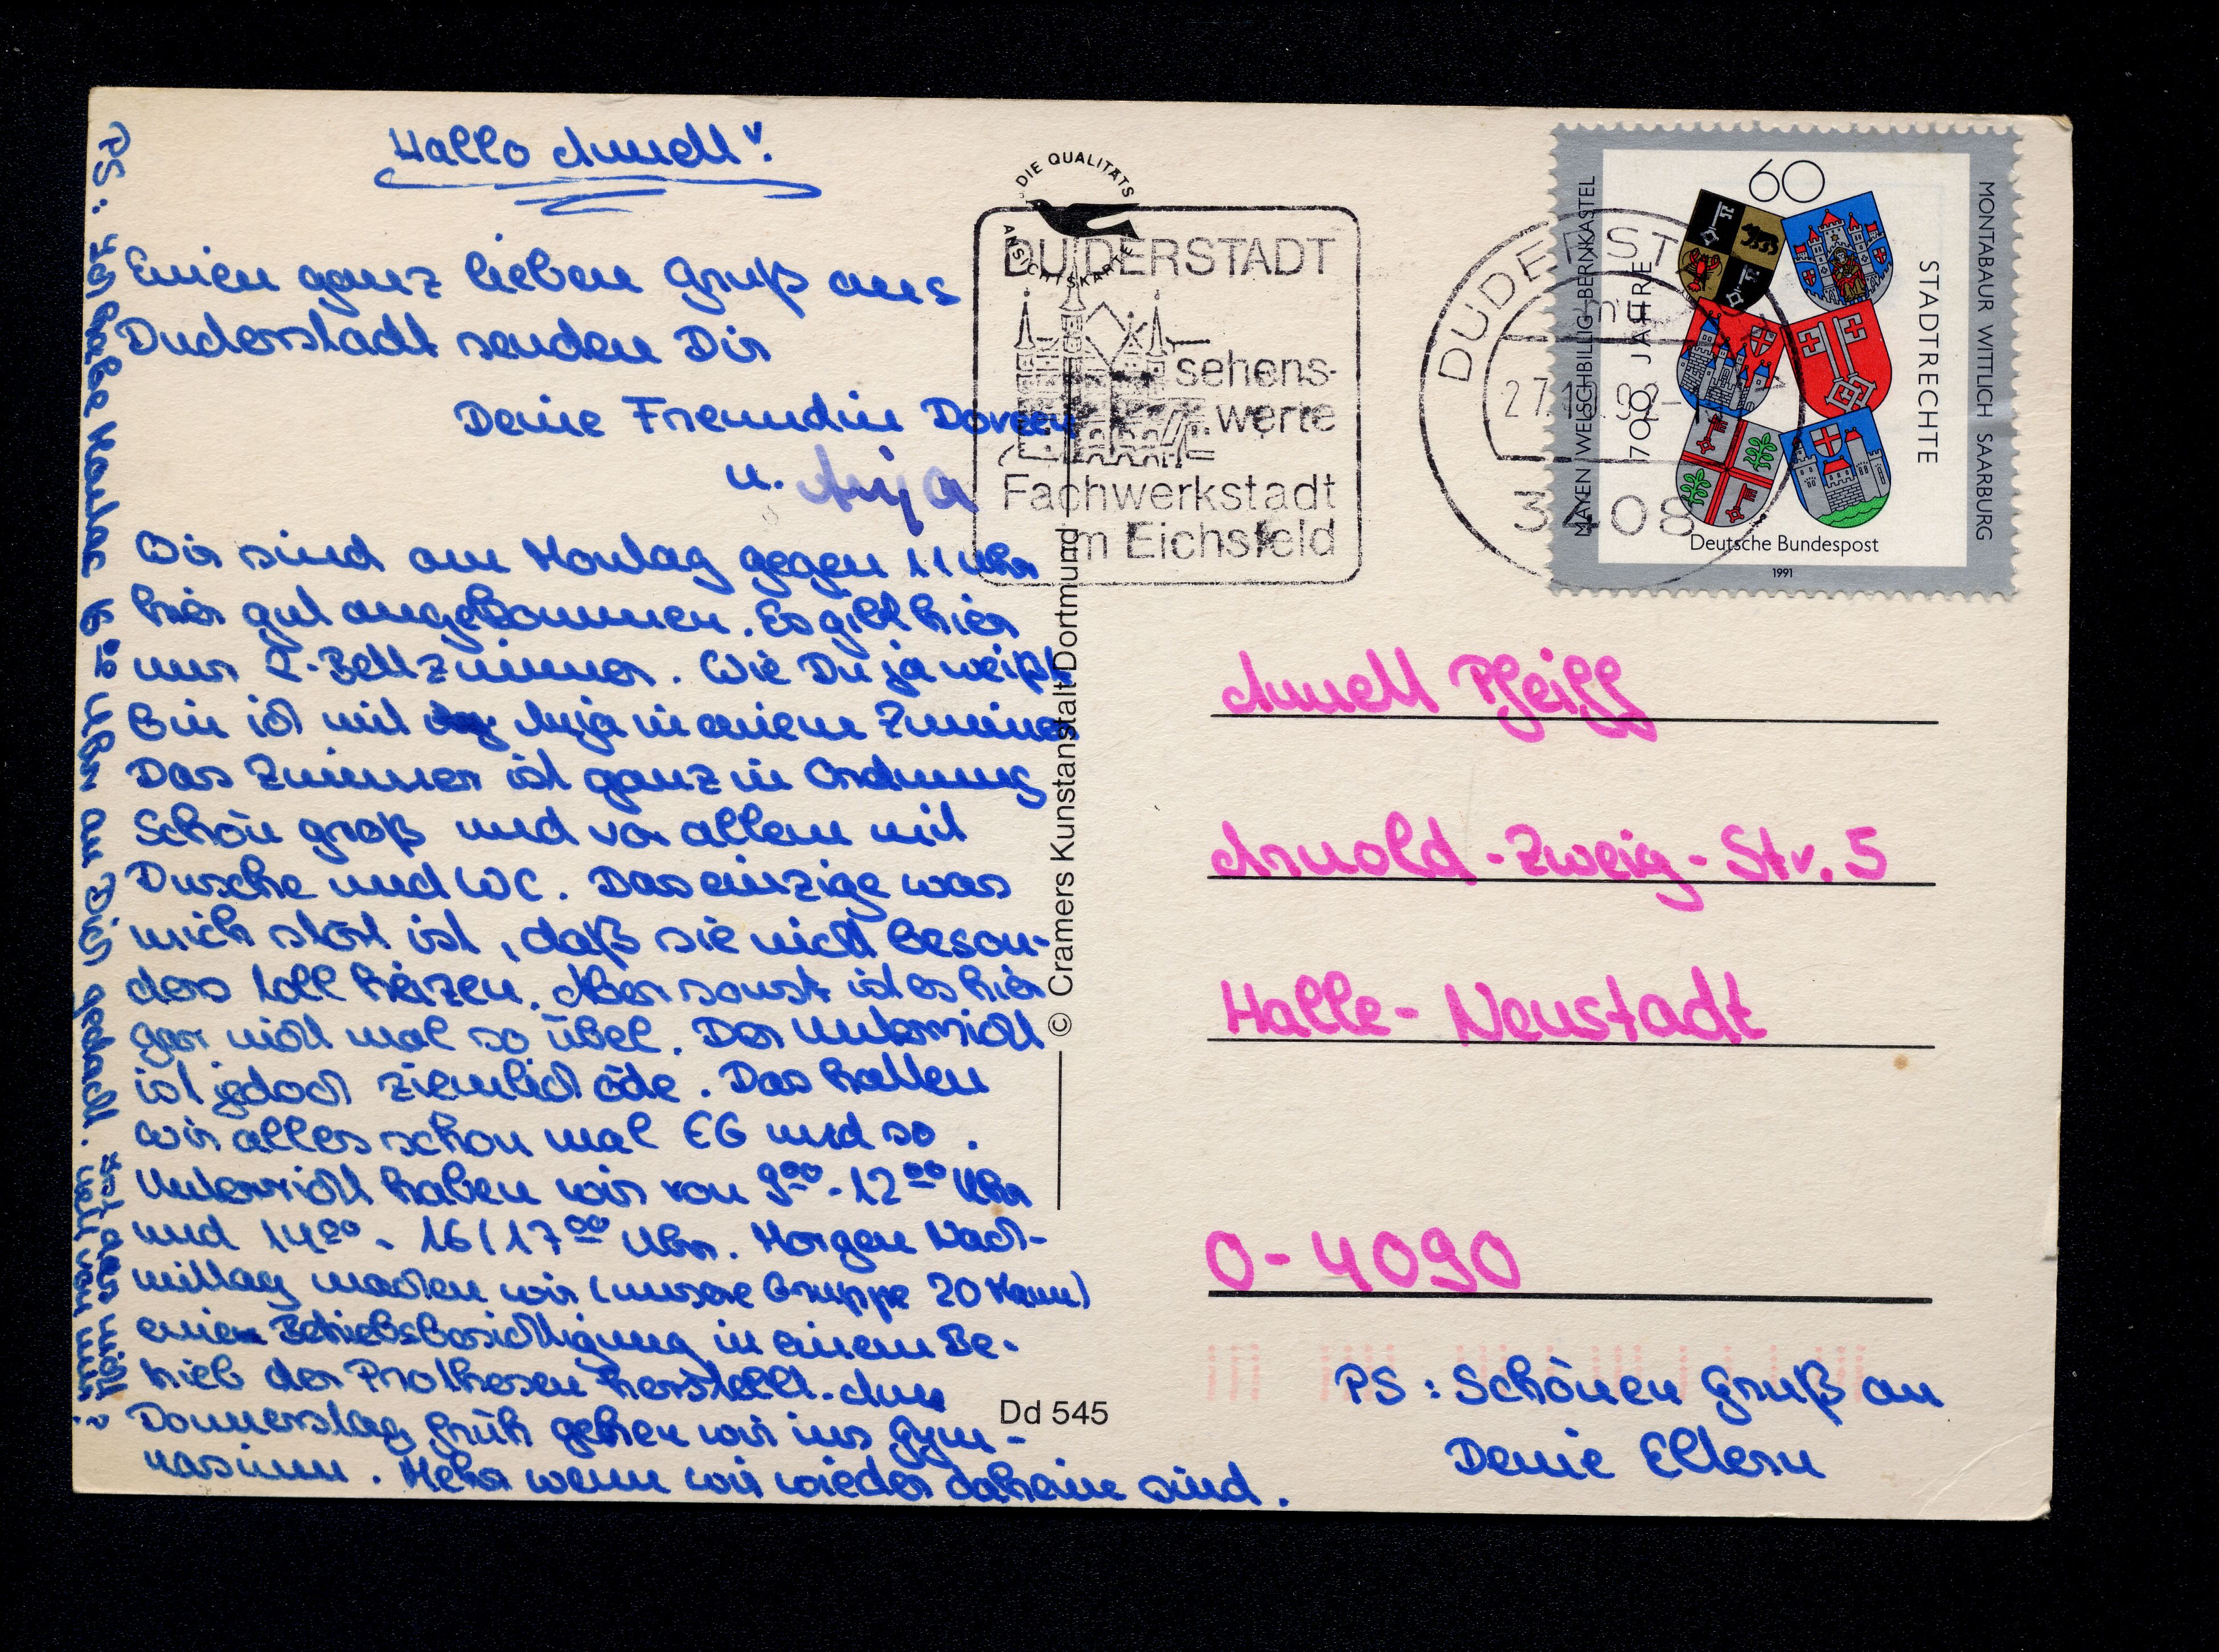 Hallo Annett!
Einen ganz lieben Gruß aus
Duderstadt senden Dir
Deine Freundin Doreen
u. Anja
Wir sind am Montag gegen 11 Uhr
hier gut angekommen. Es gibt hier
nur 2-Bettzimmer. Wie Du ja weißt
bin ich mit Anja in einem Zimmer
Das Zimmer ist ganz in Ordnung
Schön groß und vor allem mit
Dusche und WC. Das einzige was
mich stört ist, daß sie nicht beson-
ders toll heizen. Aber sonst ist es hier
gar nicht mal so übel. Der Unterricht
ist jedoch ziemlich öde. Das hatten
wir alles schon mal EG und so.
Unterricht haben wir von 9⁰⁰-12⁰⁰ Uhr
und 14⁰⁰-16/17⁰⁰ Uhr. Morgen Nach-
mittag machen wir (unsere Gruppe 20 Mann)
eine Betriebsbesichtigung in einem Be-
trieb der Prothesen herstellt. Am
Donnerstag früh gehen wir ins Gym-
nasium. Mehr wenn wir wieder daheim sind.
PS: Ich habe Montag 6¹⁵ Uhr an Dich gedacht. Ist das nicht
nett von mir?
DIE QUALITÄTS
ANSICHTSKARTE
© Cramers Kunstanstalt Dortmund
Dd 545
DUDERSTADT
sehens-
werte
Fachwerkstadt
im Eichsfeld
DUDERST
27.10.92-
3408
60
MAYEN WELSCHBILLIG BERNKASTEL
700 JAHRE
STADTRECHTE
MONTABAUR WITTLICH SAARBURG
Deutsche Bundespost
1991
Annett Pfeiff
Arnold-Zweig-Str. 5
Halle-Neustadt
O-4090
PS: Schönen Gruß an
Deine Eltern